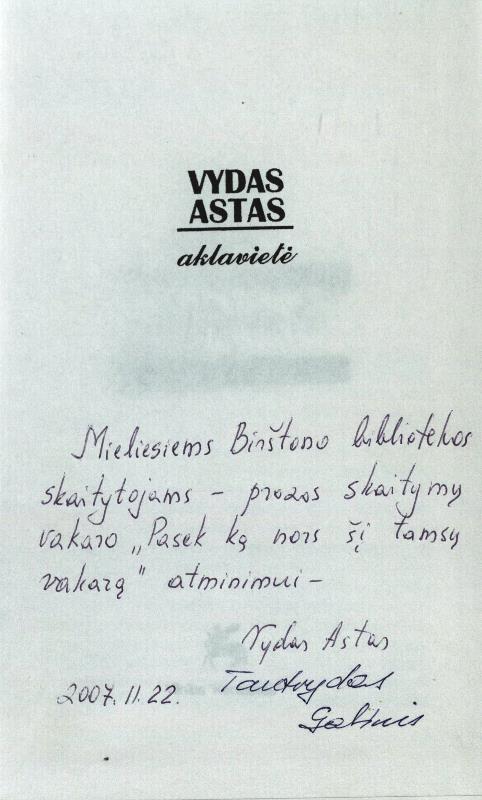 VYDAS
ASTAS
aklavietė
Mieliesiems Birštono bibliotekos
skaitytojams – prozos skaitymų
vakaro „Pasek ką nors šį tamsų
vakarą" atminimui –
Vydas Astas
2007.11.22.
Tautvydas
Galinis